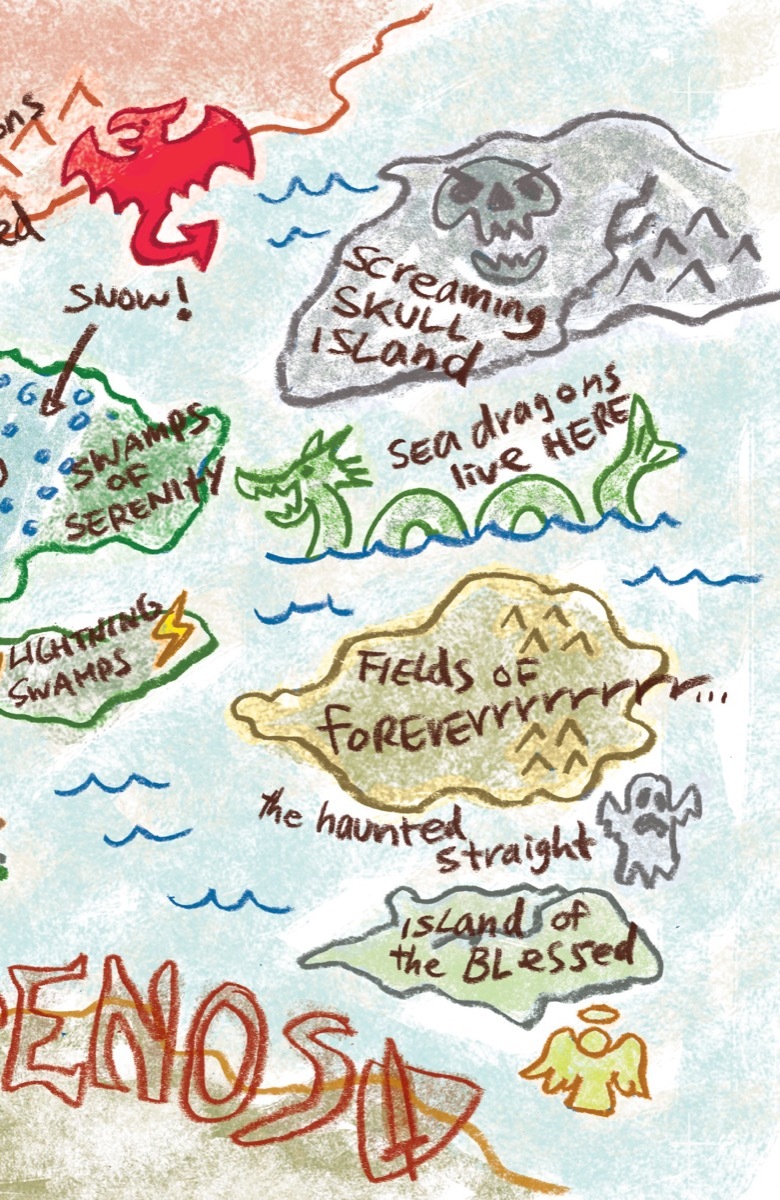 ons
ed
SNOW!
Screaming
SKULL
ISLand
Sea dragons
live HERE
SWAMPS
OF
SERENITY
LIGHTNING
SWAMPS
FIELdS OF
FOREVERrrrrrrrrrr...
the haunted
straight
ISLand of
the BLessed
ENOS